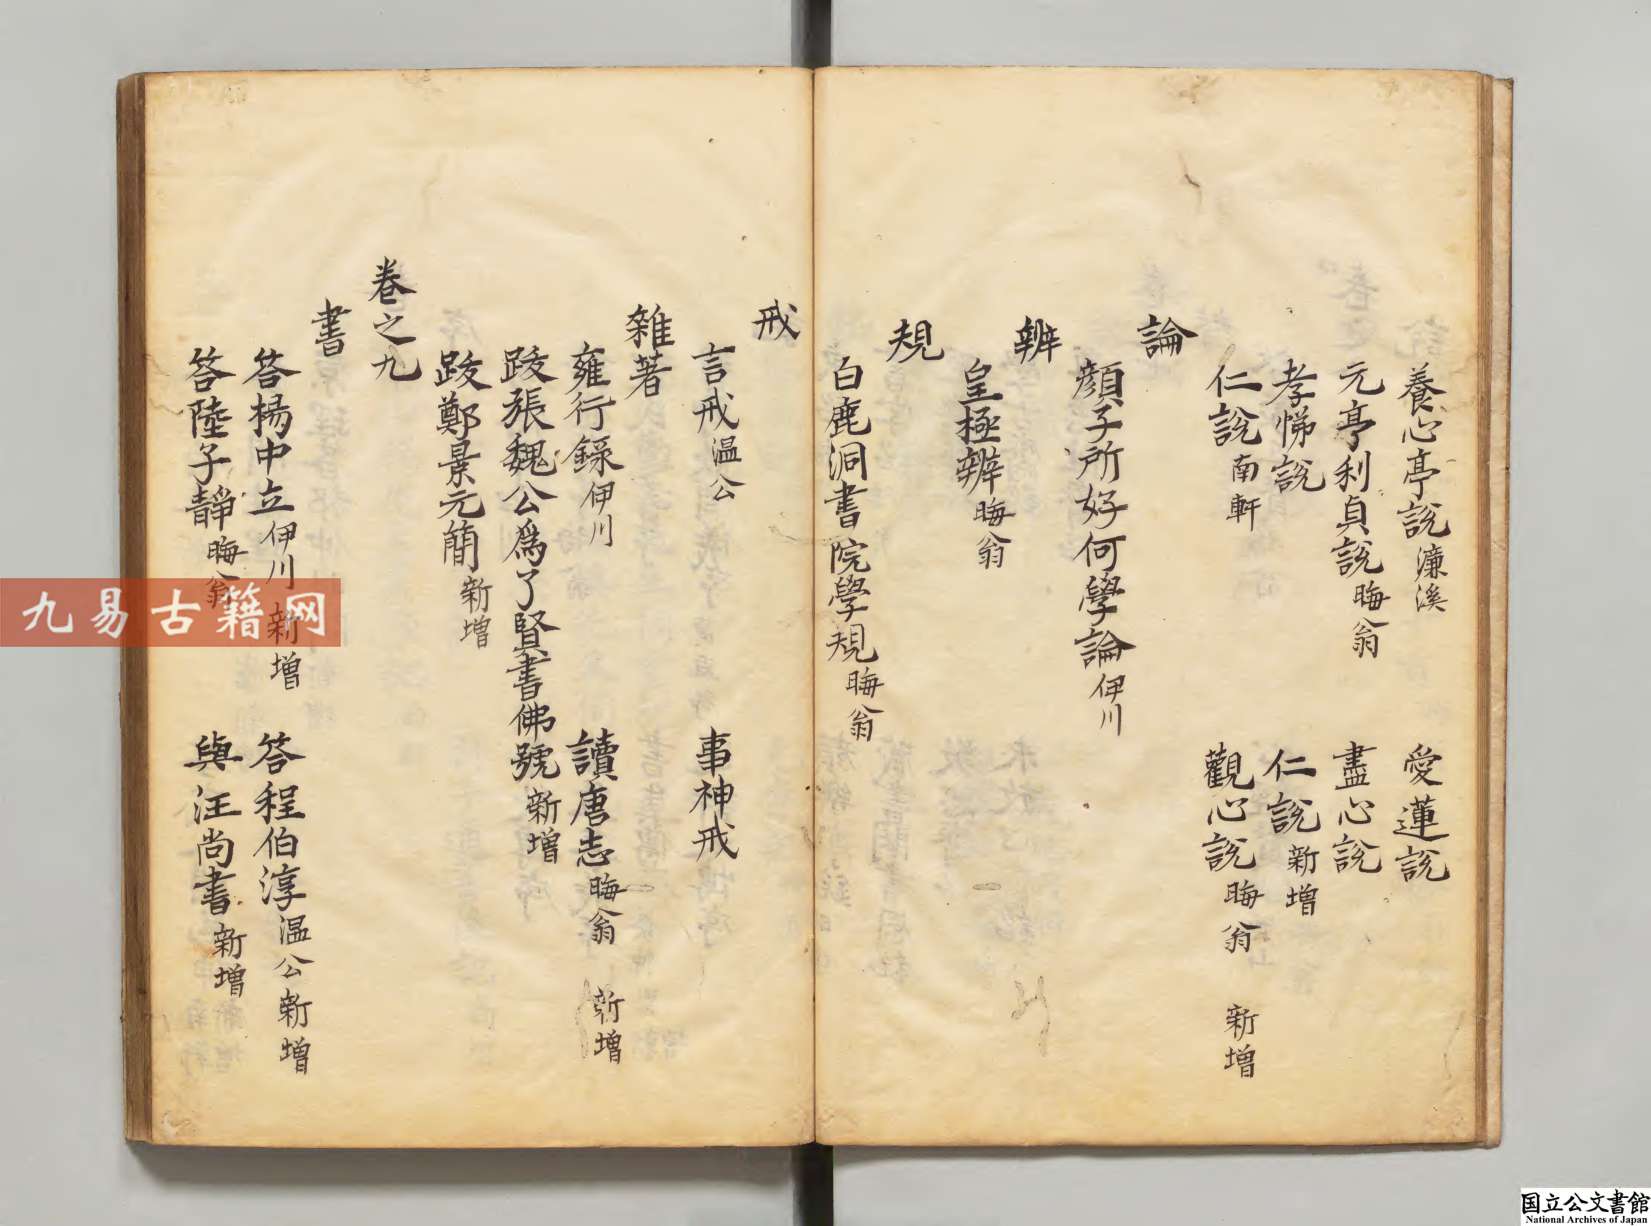 養心亭說 濂溪 愛蓮說
元亨利貞說 晦翁 盡心說
孝悌說 仁說 新增
仁說 南軒 觀心說 晦翁 新增
論
顏子所好何學論 伊川
辨
皇極辨 晦翁
規
白鹿洞書院學規 晦翁
戒
言戒 温公 事神戒
雜著
雍行錄 伊川 讀唐志 晦翁 新增
跋張魏公爲了賢書佛號 新增
跋鄭景元簡 新增
卷之九
書
答楊中立 伊川 新增 答程伯淳 温公 新增
答陸子靜 晦翁 與汪尚書 新增
九易古籍网
国立公文書館
National Archives of Japan